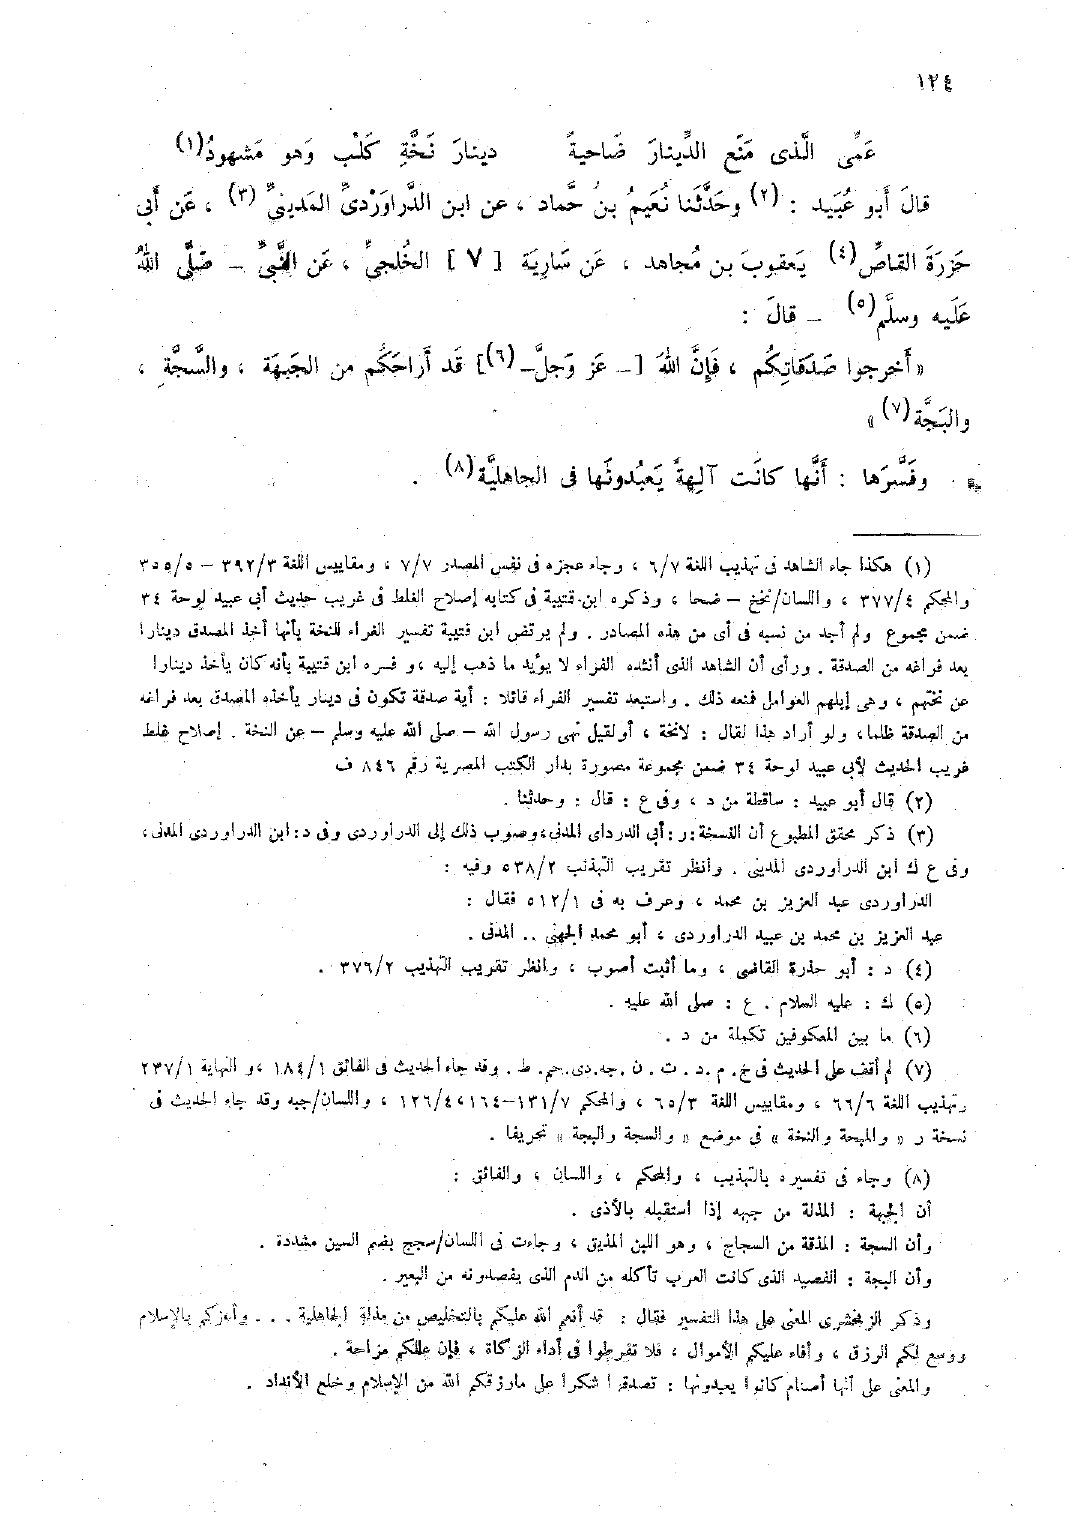 ١٢٤
عَمِّى الَّذى مَنَع الدِّينارَ ضَاحيةً دينارَ نَخَّةِ كَلْب وَهو مَشهودُ(١)
قالَ أَبو عُبَيد : (٢) وحَدَّثَنا نُعَيمُ بنُ حَّماد ، عن ابن الدَّراوَرْدىِّ المَدينىِّ (٣) ، عَن أَبى
حَزرَةَ القاصِّ(٤) يَعقوبَ بن مُجاهد ، عَن سَاريَة [ ٧ ] الخُلجىِّ ، عَن النَّبىِّ – صَلَّى اللهُ
عَلَيه وسلَّم(٥) – قالَ :
« أَخرجوا صَدَقاتِكُم ، فَإِنَّ اللهَ [– عَز وَجلَّ–(٦)] قَد أَراحَكُم من الجَبهَة ، والسَّجَّةِ ،
والبَجَّة(٧) »
وفَسَّرَها : أَنَّها كانَت آلِهةً يَعبُدونَها فى الجاهليَّة(٨) .
(١) هكذا جاء الشاهد فى تهذيب اللغة ٦/٧ ، وجاء عجزه فى نفس المصدر ٧/٧ ، ومقاييس اللغة ٣٩٢/٣ – ٣٥٥/٥
والمحكم ٣٧٧/٤ ، واللسان/نخخ – ضحا ، وذكره ابن قتيبة فى كتابه إصلاح الغلط فى غريب حديث أبى عبيد لوحة ٣٤
ضمن مجموع ولم أجد من نسبه فى أى من هذه المصادر . ولم يرتض ابن قتيبة تفسير الفراء للنخة بأنها أخذ المصدق دينارا
بعد فراغه من الصدقة . ورأى أن الشاهد الذى أنشده الفراء لا يؤيد ما ذهب إليه ، و فسره ابن قتيبة بأنه كان يأخذ دينارا
عن نختهم ، وهى إبلهم العوامل فمنعه ذلك . واستبعد تفسير الفراء قائلا : أية صدقة تكون فى دينار يأخذه المصدق بعد فراغه
من الصدقة ظلما، ولو أراد هذا لقال : لانخة ، أولقيل نهى رسول الله – صلى الله عليه وسلم – عن النخة . إصلاح غلط
غريب الحديث لأبى عبيد لوحة ٣٤ ضمن مجموعة مصورة بدار الكتب المصرية رقم ٨٤٦ ف
(٢) قال أبو عبيد : ساقطة من د ، وفى ع : قال : وحدثنا .
(٣) ذكر محقق المطبوع أن النسخة : ر : أبى الدرداى المدنى، وصوب ذلك إلى الدراوردى وفى د : ابن الدراوردى المدنى،
وفى ع ك ابن الدراوردى المدينى . وأنظر تقريب التهذيب ٥٣٨/٢ وفيه :
الدراوردى عبد العزيز بن محمد ، وعرف به فى ٥١٢/١ فقال :
عبد العزيز بن محمد بن عبيد الدراوردى ، أبو محمد الجهنى .. المدنى .
(٤) د : أبو حذرة القاضى ، وما أثبت أصوب ، وانظر تقريب التهذيب ٣٧٦/٢ .
(٥) ك : عليه السلام . ع : صلى الله عليه .
(٦) ما بين المعكوفين تكملة من د .
(٧) لم أقف على الحديث فى خ . م . د . ت . ن . جه . دى . حم . ط . وقد جاء الحديث فى الفائق ١٨٤/١ ، و النهاية ٢٣٧/١
وتهذيب اللغة ٦٦/٦ ، ومقاييس اللغة ٦٥/٣ ، والمحكم ١٣١/٧–١٦٤، ١٢٦/٤ ، واللسان/جبه وقد جاء الحديث فى
نسخة ر « والمبحة والنخة » فى موضع « والسجة والبجة » تحريفا .
(٨) وجاء فى تفسيره بالتهذيب ، والمحكم ، واللسان ، والفائق :
أن الجبهة : المذلة من جبهه إذا استقبله بالأذى .
وأن السجة : المذقة من السجاج ، وهو اللبن المذيق ، وجاءت فى اللسان/سجج بضم السين مشددة .
وأن البجة : الفصيد الذى كانت العرب تأكله من الدم الذى يفصدونه من البعير .
وذكر الزمخشرى المعنى على هذا التفسير فقال : قد أنعم الله عليكم بالتخليص من مذلة الجاهلية . . . وأعزكم بالإسلام
ووسع لكم الرزق ، وأفاء عليكم الأموال ، فلا تفرطوا فى أداء الزكاة ، فإن عللكم مزاحة .
والمعنى على أنها أصنام كانوا يعبدونها : تصدقوا شكرا على مارزقكم الله من الإسلام وخلع الأنداد .